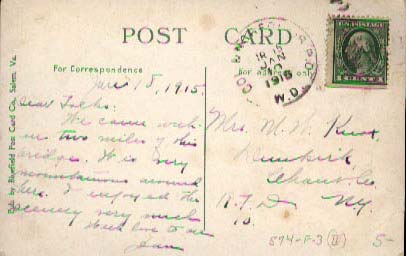 POST CARD
For Correspondence
For address only
Jan 18, 1915.
Dear Folks:
We came with-
in two miles of this
bridge. It is very
mountainous around
here. I enjoyed the
scenery very much
Much love to all
Mrs. M. W. Knox
Dunkirk
Chaut. Co.
R.F.D N.Y.
10.
JAN
1915
W.D.
1 CENT 1
Pub. by Bluefield Post Card Co., Salem, Va.
594-F-3 (II) 5-